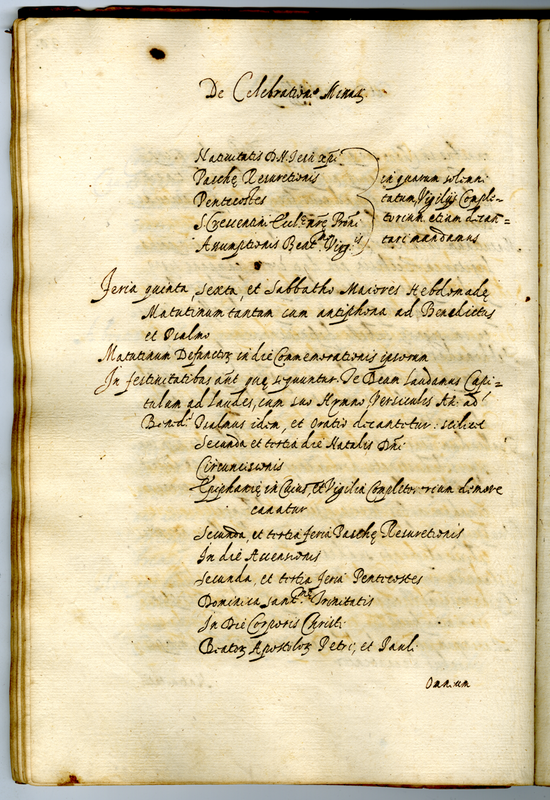 De Celebratione Missaꝝ
Natiuitatis D.N. Iesu xp̄i
Paschę Resuretionis
Pentecostes
S. Crescentini Eccl.ę nr̄ę Prōni
Assumptionis Beat.mę Virg.is
in quarum solemni
tatum Vigilijs Comple-
torium etium decan=
tari mandamus
Feria quinta, sexta, et Sabbatho Maiores Hebdomadę
Matutinum tantum cum antiphona ad Benedictus
et Psalmo
Matutinum Defunctoꝝ in die Commemorationis ipsorum
In festiuitatibus aūt quę sequuntur Te Deum laudamus Capi=
tulum ad laudes, cum suo Hymno Versiculis An: ad
Bened.s Psalmus idem, et Oratio decantetur: scilicet
Secunda et tertia die Natalis Dn̄i
Circuncisionis
Epiphanię in Cuius, et Vigilia Completorium de more
canatur
Secunda, et tertia feria Paschę Resuretionis
In die Ascensionis
Secunda, et tertia feria Pentecostes
Dominica sanct.mę Trinitatis
In Die Corporis Christi
Beatoꝝ Apostoloꝝ Petri, et Pauli
Omnium